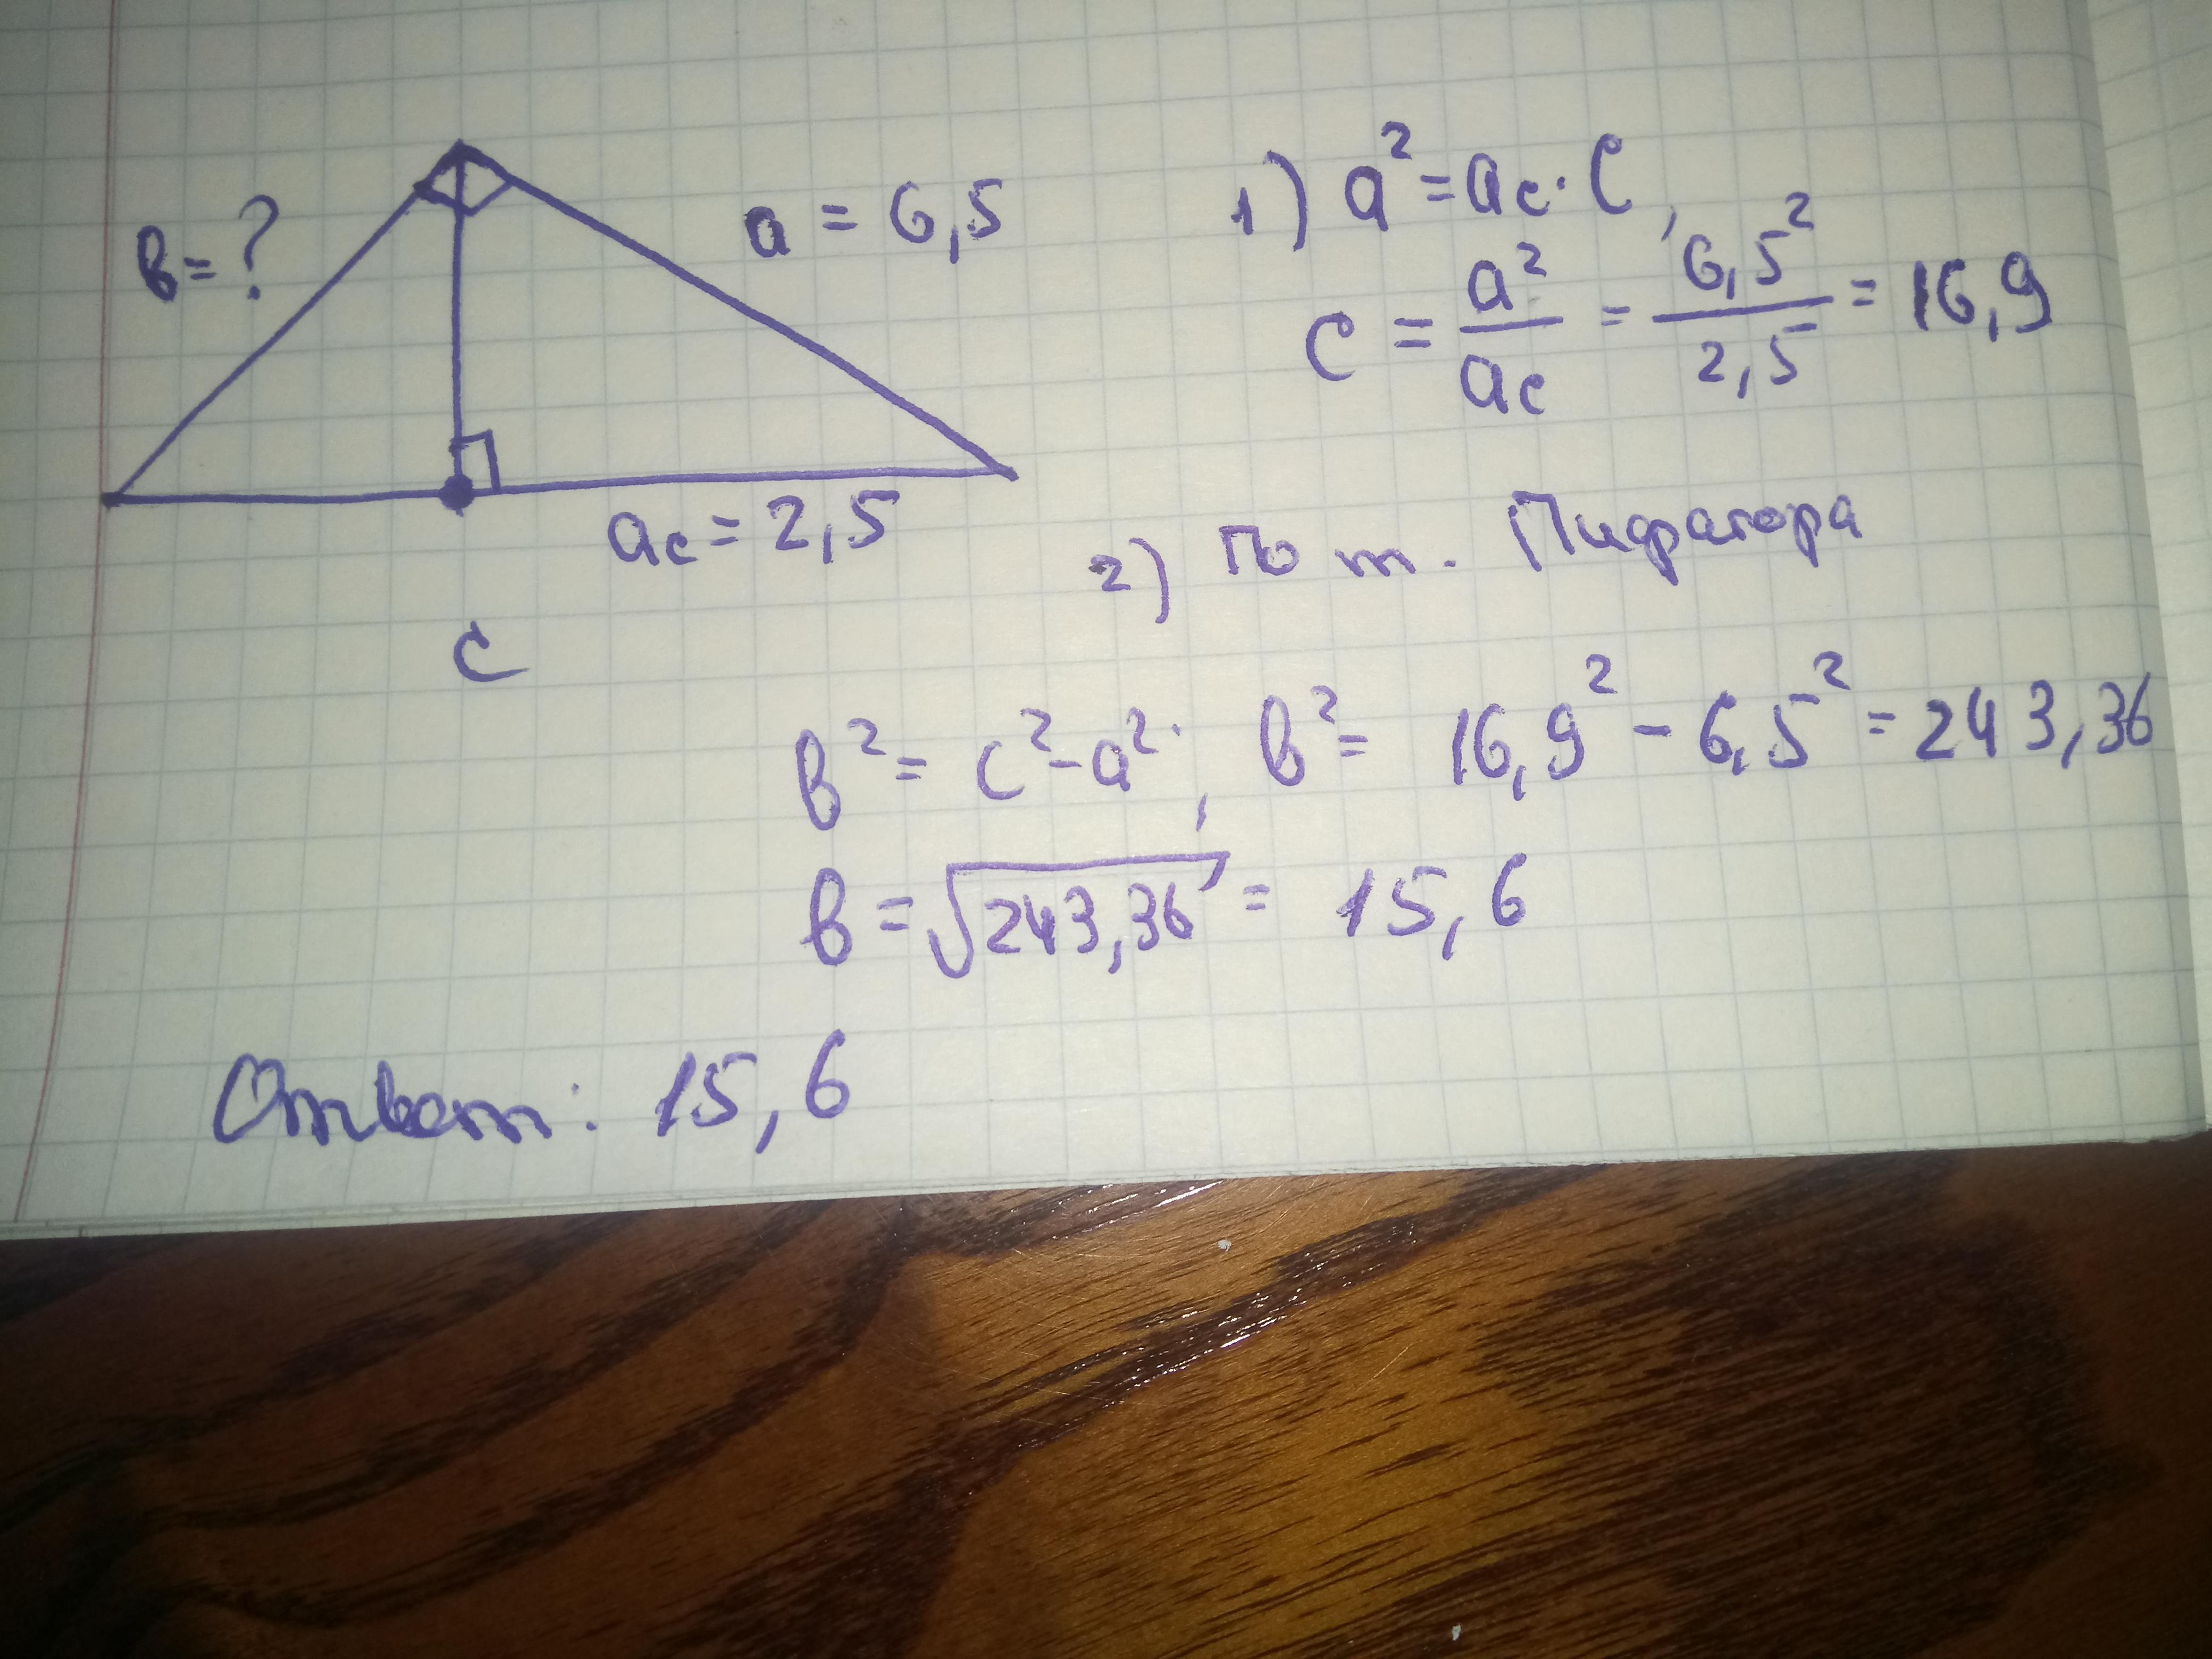 в=?
a = 6,5
ac = 2,5
c
1) a² = ac · c,
c = a²/ac = 6,5²/2,5 = 16,9
2) По т. Пифагора
в² = c² - a², в² = 16,9² - 6,5² = 243,36
в = √243,36 = 15,6
Ответ: 15,6